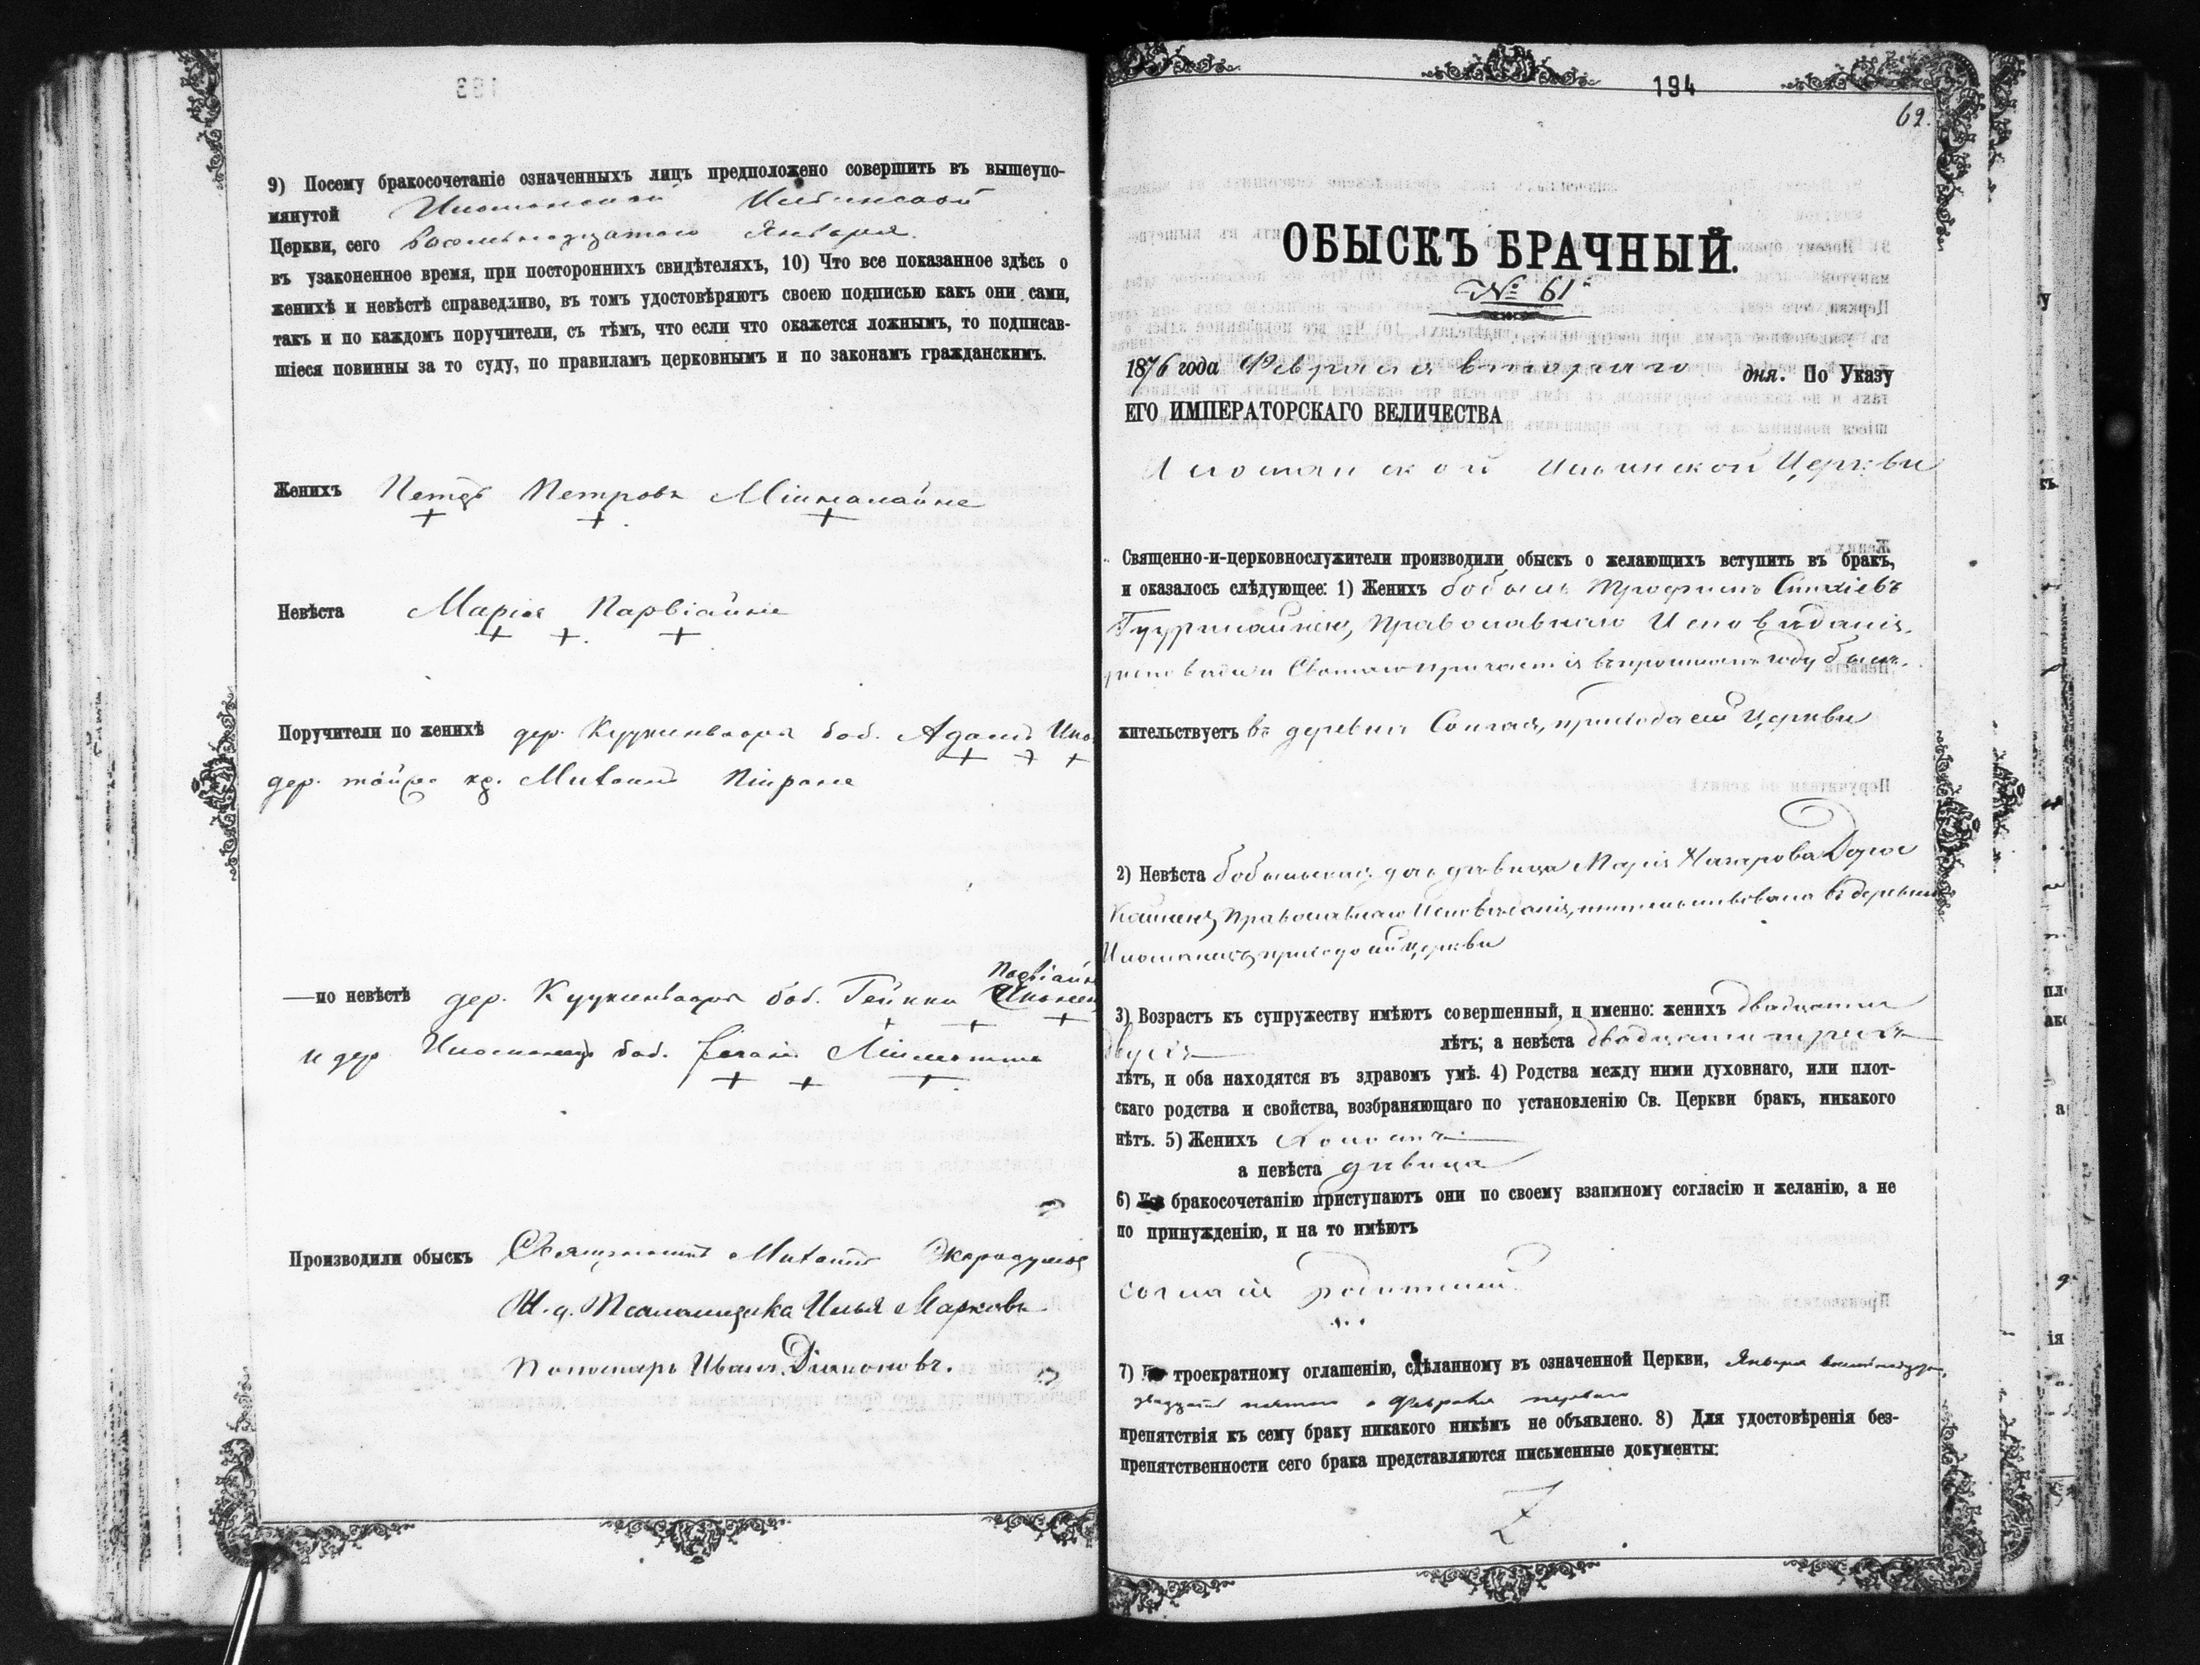 9) Посему бракосочетаніе означенныхъ лицъ предположено совершить въ вышеупо-
мянутой Иломанской Ильинской
Церкви, сего Восемьнадцатаго Января
въ узаконенное время, при постороннихъ свидѣтеляхъ, 10) Что все показанное здѣсь о
женихѣ и невѣстѣ справедливо, въ томъ удостовѣряютъ своею подписью какъ они сами,
такъ и по каждомъ поручители, съ тѣмъ, что если что окажется ложнымъ, то подписав-
шіеся повинны за то суду, по правиламъ церковнымъ и по законамъ гражданскимъ.
Женихъ Петръ Петровъ
Невѣста Марія Парвіайне
Поручители по женихѣ дер. Куукинваара боб. Адамъ
дер. кр. Михаилъ Пійроне
—по невѣстѣ дер. Куукинваара боб. Гейкки
и дер. боб.
Производили обыскъ Священникъ Михаилъ
И. д. Псаломщика Илья Марковъ
Пономарь Иванъ Діаконовъ.
194
62.
ОБЫСКЪ БРАЧНЫЙ.
№ 61
1876 года Февраля втораго дня. По Указу
ЕГО ИМПЕРАТОРСКАГО ВЕЛИЧЕСТВА
Иломанской Ильинской Церкви
Священно-и-церковнослужители производили обыскъ о желающихъ вступить въ бракъ,
и оказалось слѣдующее: 1) Женихъ бобыль Трофимъ
Православнаго Исповѣданія,
Святаго причастія въ прошломъ году былъ.
жительствуетъ въ деревнѣ прихода сей Церкви
2) Невѣста дѣвица Марія Назарова
Православнаго Исповѣданія, въ деревнѣ
сей Церкви
3) Возрастъ къ супружеству имѣютъ совершенный, и именно: женихъ двадцати
двухъ лѣтъ; а невѣста двадцати трехъ
лѣтъ, и оба находятся въ здравомъ умѣ. 4) Родства между ними духовнаго, или плот-
скаго родства и свойства, возбраняющаго по установленію Св. Церкви бракъ, никакого
нѣтъ. 5) Женихъ холостъ
а невѣста дѣвица
6) бракосочетанію приступаютъ они по своему взаимному согласію и желанію, а не
по принужденію, и на то имѣютъ
согласіе родителей
7) троекратному оглашенію, сдѣланному въ означенной Церкви, Января
двадцать пятаго и Февраля перваго
препятствія къ сему браку никакого никѣмъ не объявлено. 8) Для удостовѣренія без-
препятственности сего брака представляются письменные документы: